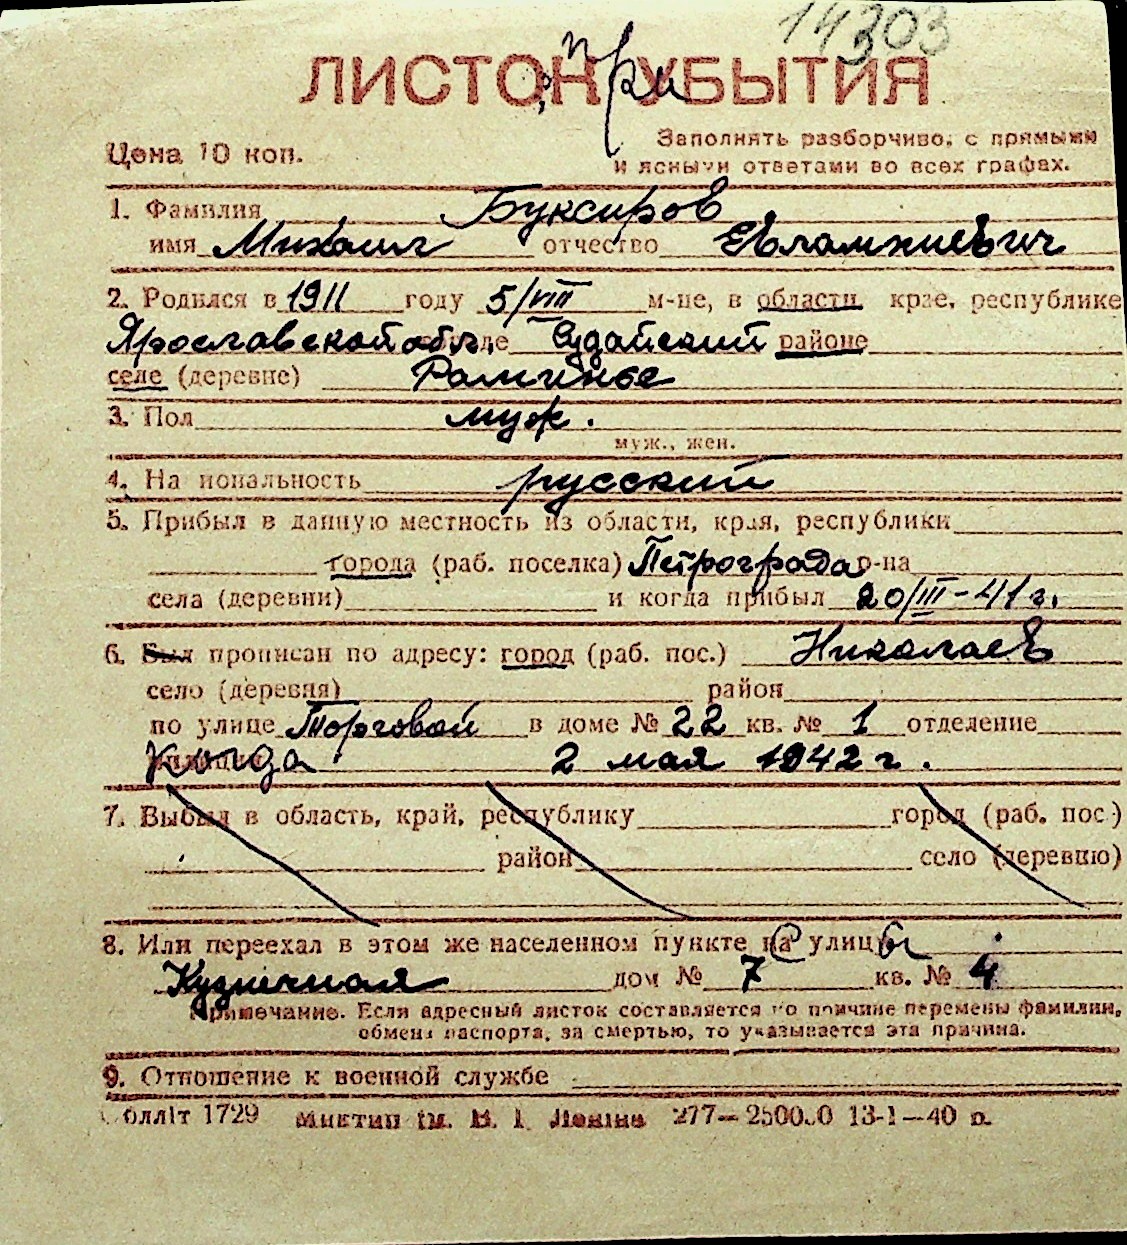 14303
ЛИСТОК при УБЫТИЯ
Цена 10 коп.
Заполнять разборчиво, с прямыми
и ясными ответами во всех графах.
1. Фамилия Буксиров
имя Михаил отчество Евлампиевич
2. Родился в 1911 году 5/VIII м-це, в области, крае, республике
Ярославской обл. Судайский районе
селе (деревне)
3. Пол муж.
муж., жен.
4. Национальность русский
5. Прибыл в данную местность из области, края, республики
города (раб. поселка) Петрограда р-на
села (деревни) и когда прибыл 20/III-41 г.
6. Был прописан по адресу: город (раб. пос.) Николаев
село (деревня) район
по улице Торговой в доме № 22 кв. № 1 отделение
Когда 2 мая 1942 г.
7. Выбыл в область, край, республику город (раб. пос.)
район село (деревню)
8. Или переехал в этом же населенном пункте на с улицы
Кузнечная дом № 7 кв. № 4
Примечание. Если адресный листок составляется по причине перемены фамилии,
обмена паспорта, за смертью, то указывается эта причина.
9. Отношение к военной службе
Облліт 1729 Миктип ім. В. І. Леніна 277— 13-1—40 р.